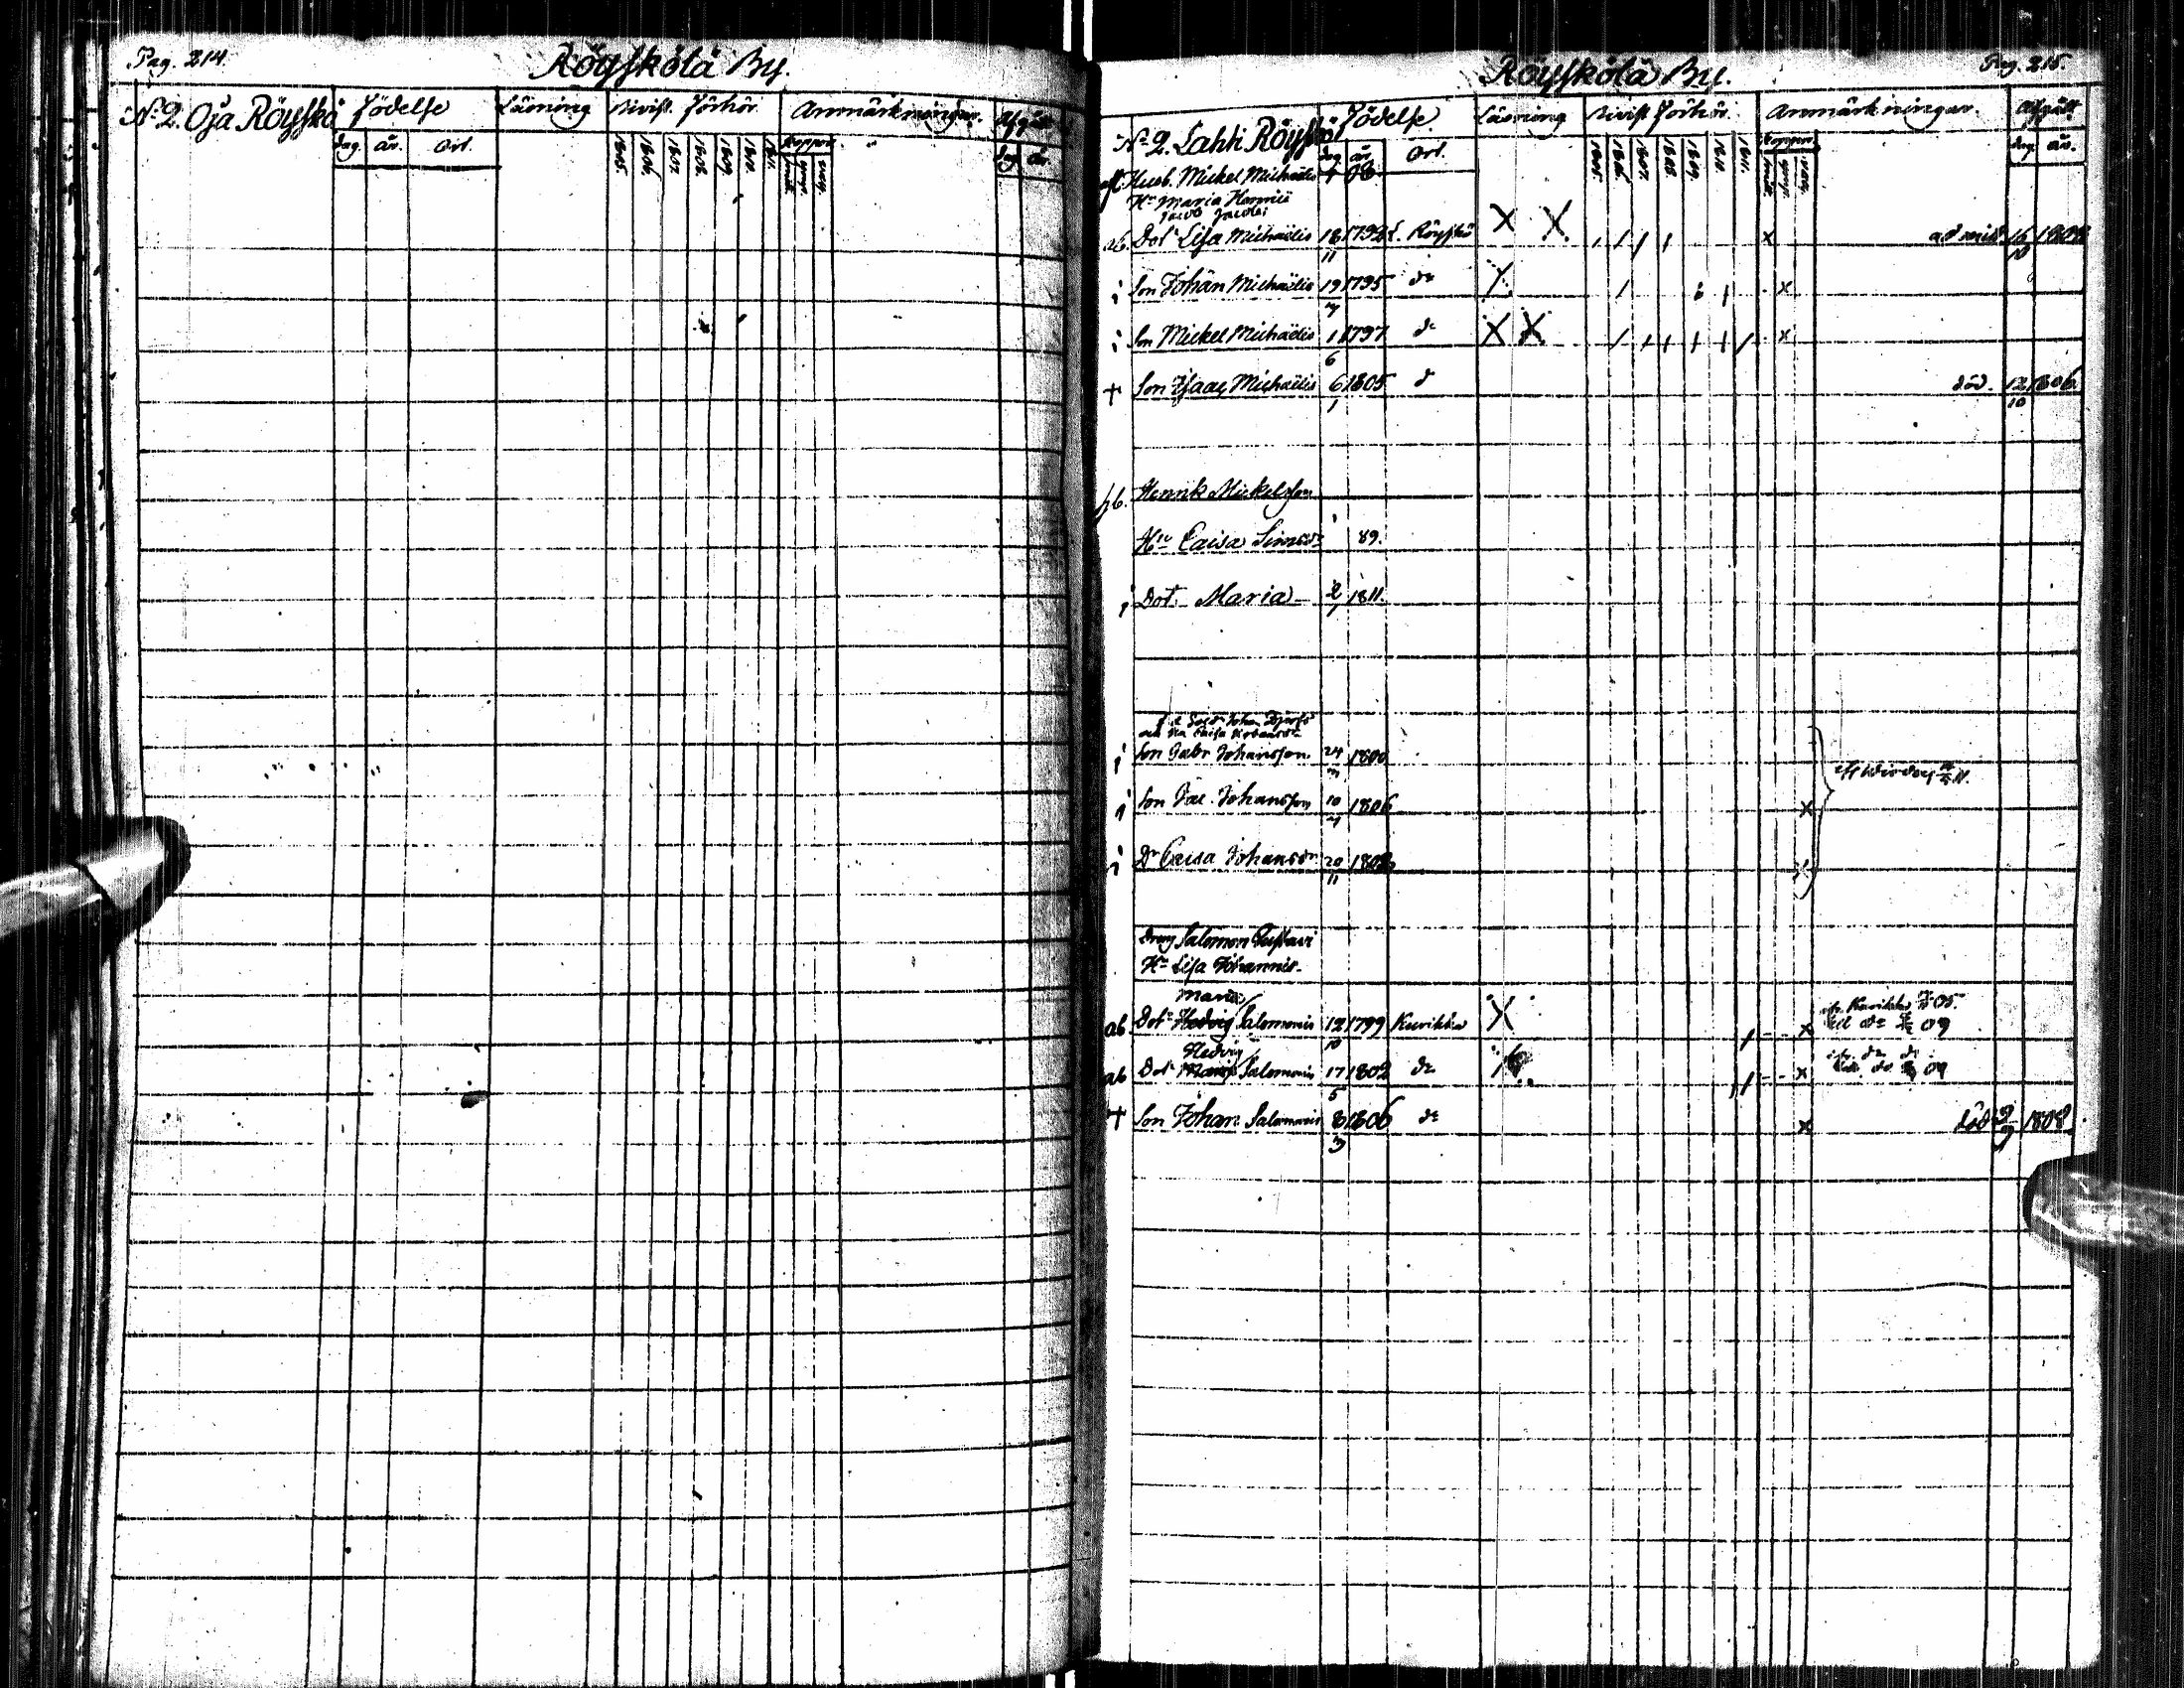 Pag. 214.
Röyskölä By.
N:o 2. Oja Röyskö
Födelse
Läsning
Nattv. Förhör
Anmärkningar.
Afgått
dag. år. Ort.
1805. 1806. 1807. 1808. 1809. 1810. 1811.
Koppor.
dag år.
Pag. 215.
Röyskölä By.
N:o 2. Lahti Röyskö
Födelse.
Läsning
Förhör.
Anmärkningar.
Afgått
dag år Ort.
1805. 1806. 1807. 1808. 1809. 1810. 1811.
Koppor.
dag. år.
Husb. Mickel Michaëlis
Hu Maria Hannis
Jacob Jacobi
ab. Dot. Lisa Michaëlis 18/11 Röyskö X X x 16/10
i Son Johan Michaëlis 19/7 1795 do X x
i Son Mickel Michaëlis 1/6 1797 do X X x
+ Son Isaac Michaëlis 6/1 1805 d död. 12/10 1806.
Henrik Mickelsson
Hu Caisa 89.
i Dot. Maria 2/1 1811.
i Son Johansson 24 1800
i Son Johansson 10 1806 x
i Dr Caisa Johansdr 20/11
Salomon Gustavi
Hu Lisa Johannis
Maria
ab. Dot. Hedvig Salomonis 12/10 1799 Kurikka X x 05.
09
Hedvig
ab Dot. Maria Salomonis 17/5 1802 do x 09
+ Son Johan Salomonis 8/3 1806 do x död 1808.